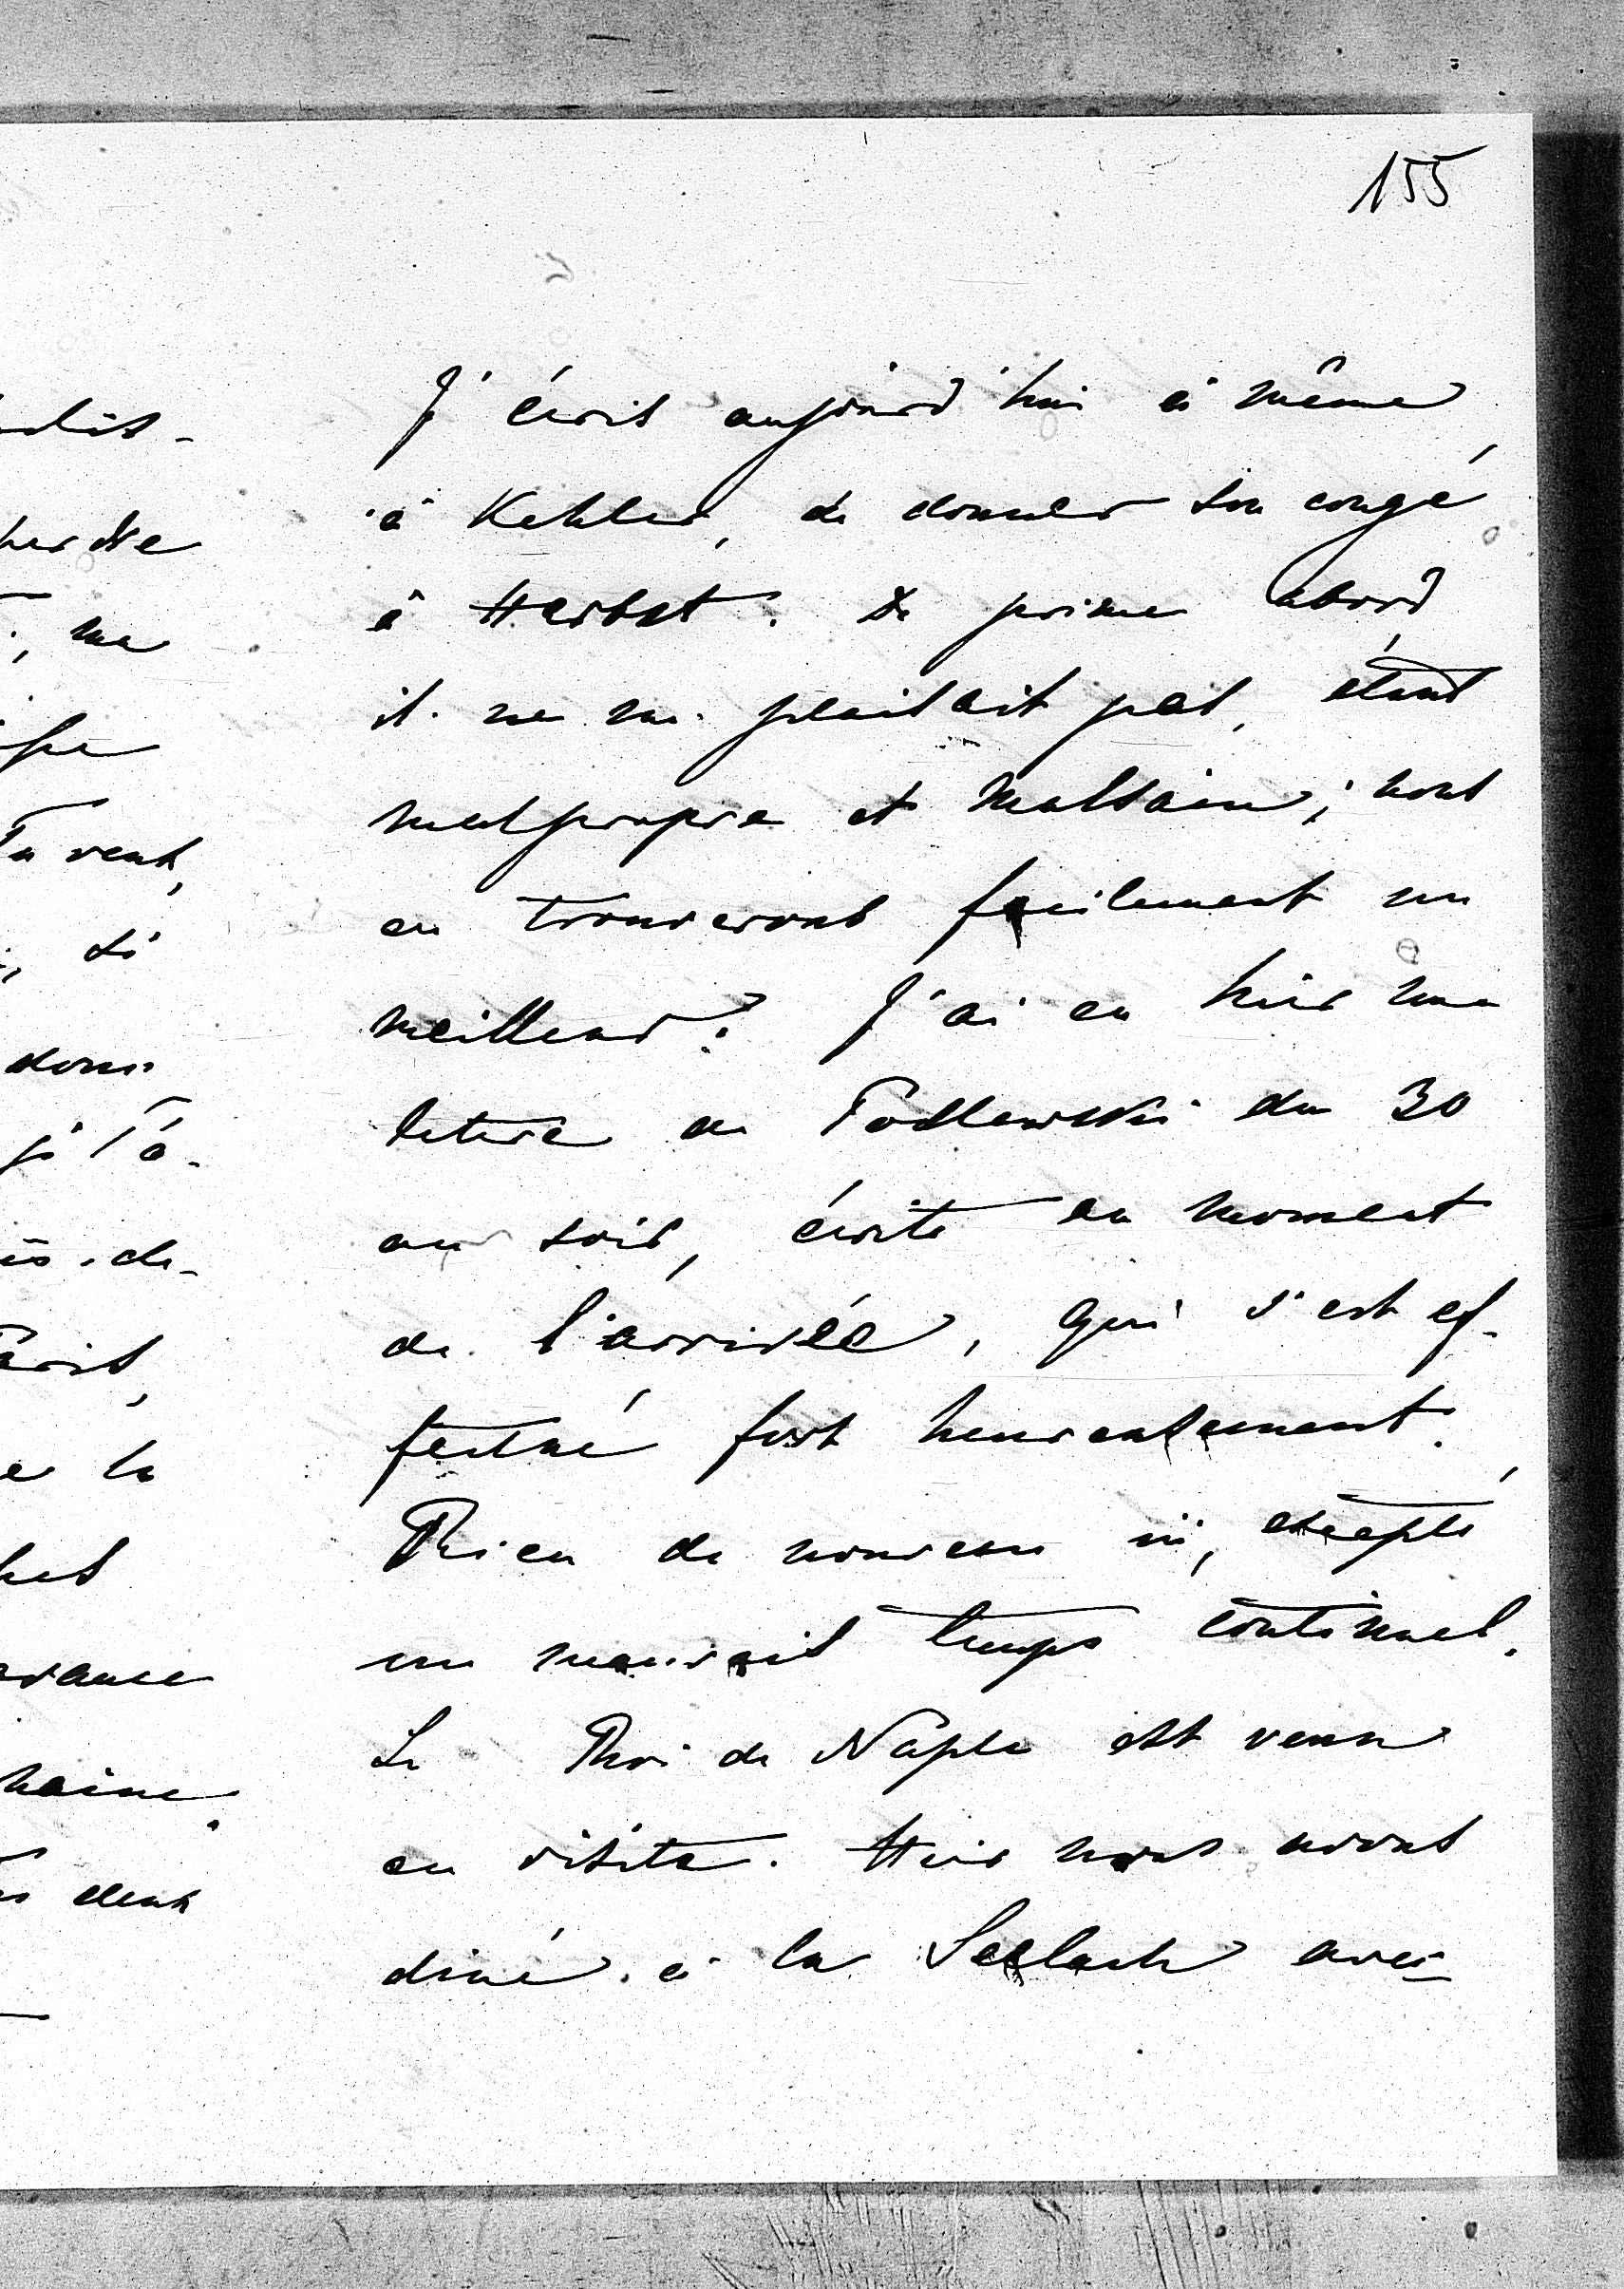 155
J'écris aujourd'hui à même
à Kehler, de donner son congé
à Herbst. De prime abord
il ne me plaisait pas, étant
malpropre et malsain; nous
en trouverons facilement un
meilleur? J'ai eu hier une
lettre de Podlewski du 30
au soir, écrite au moment
de l'arrivée, qui s'est ef-
fectué fort heureusement.
Rien de nouveau ici, excepté
un mauvais temps continuel.
Le Roi de Naple est venu
en visite. Hier nous avons
diné à la Seelach avec